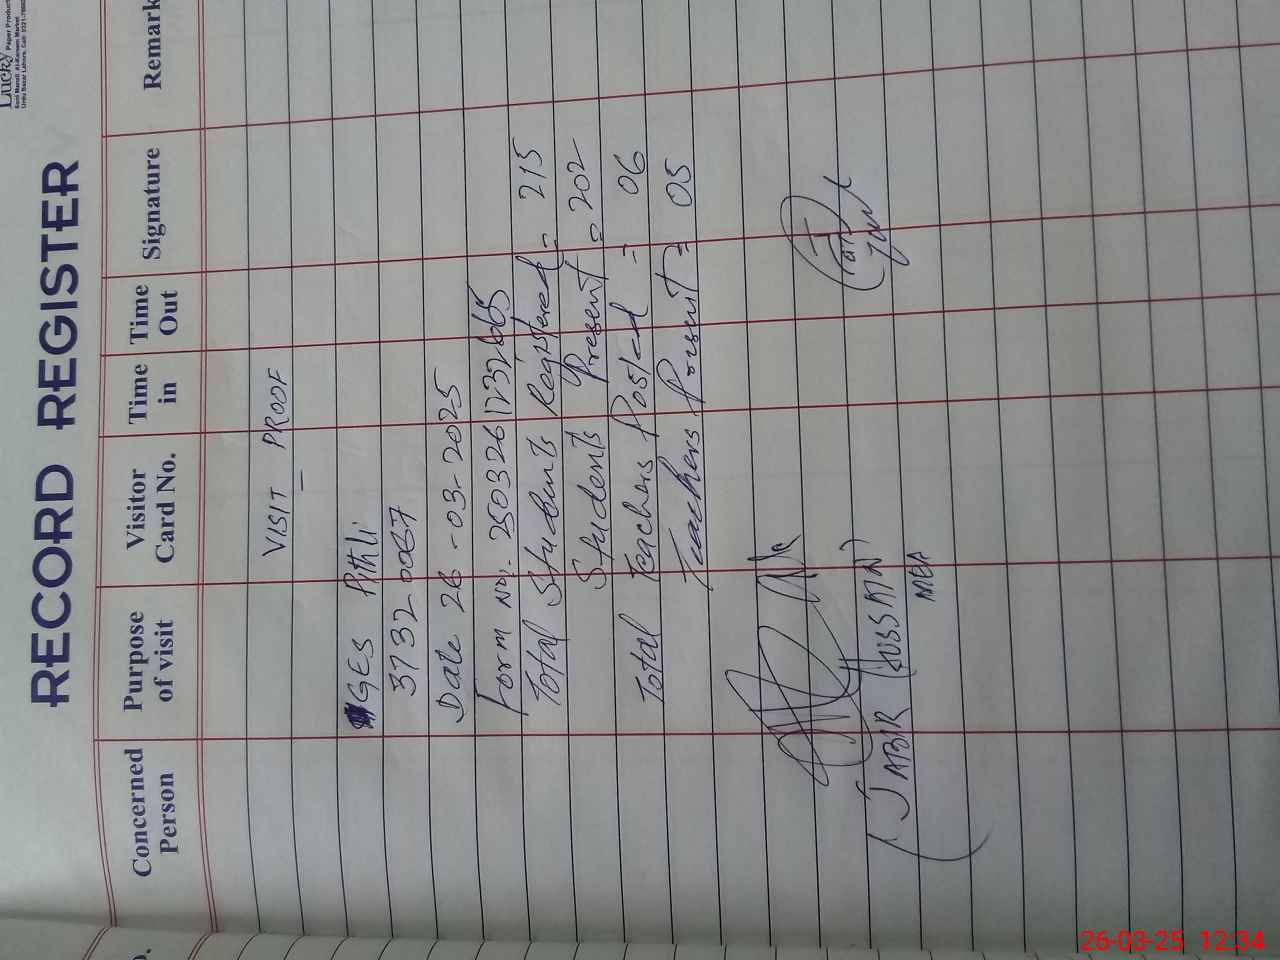 Lucky Paper Product
RECORD REGISTER
Concerned Person
Purpose of visit
Visitor Card No.
Time in
Time Out
Signature
Remark
VISIT PROOF
GES Pithli
37320067
Date 26-03-2025
Form No. 250326123265
Total Students Registered = 215
Students Present = 202
Total Teachers Posted = 06
Teachers Present = 05
(JABIR HUSSAIN)
MEA
26-03-25 12:34